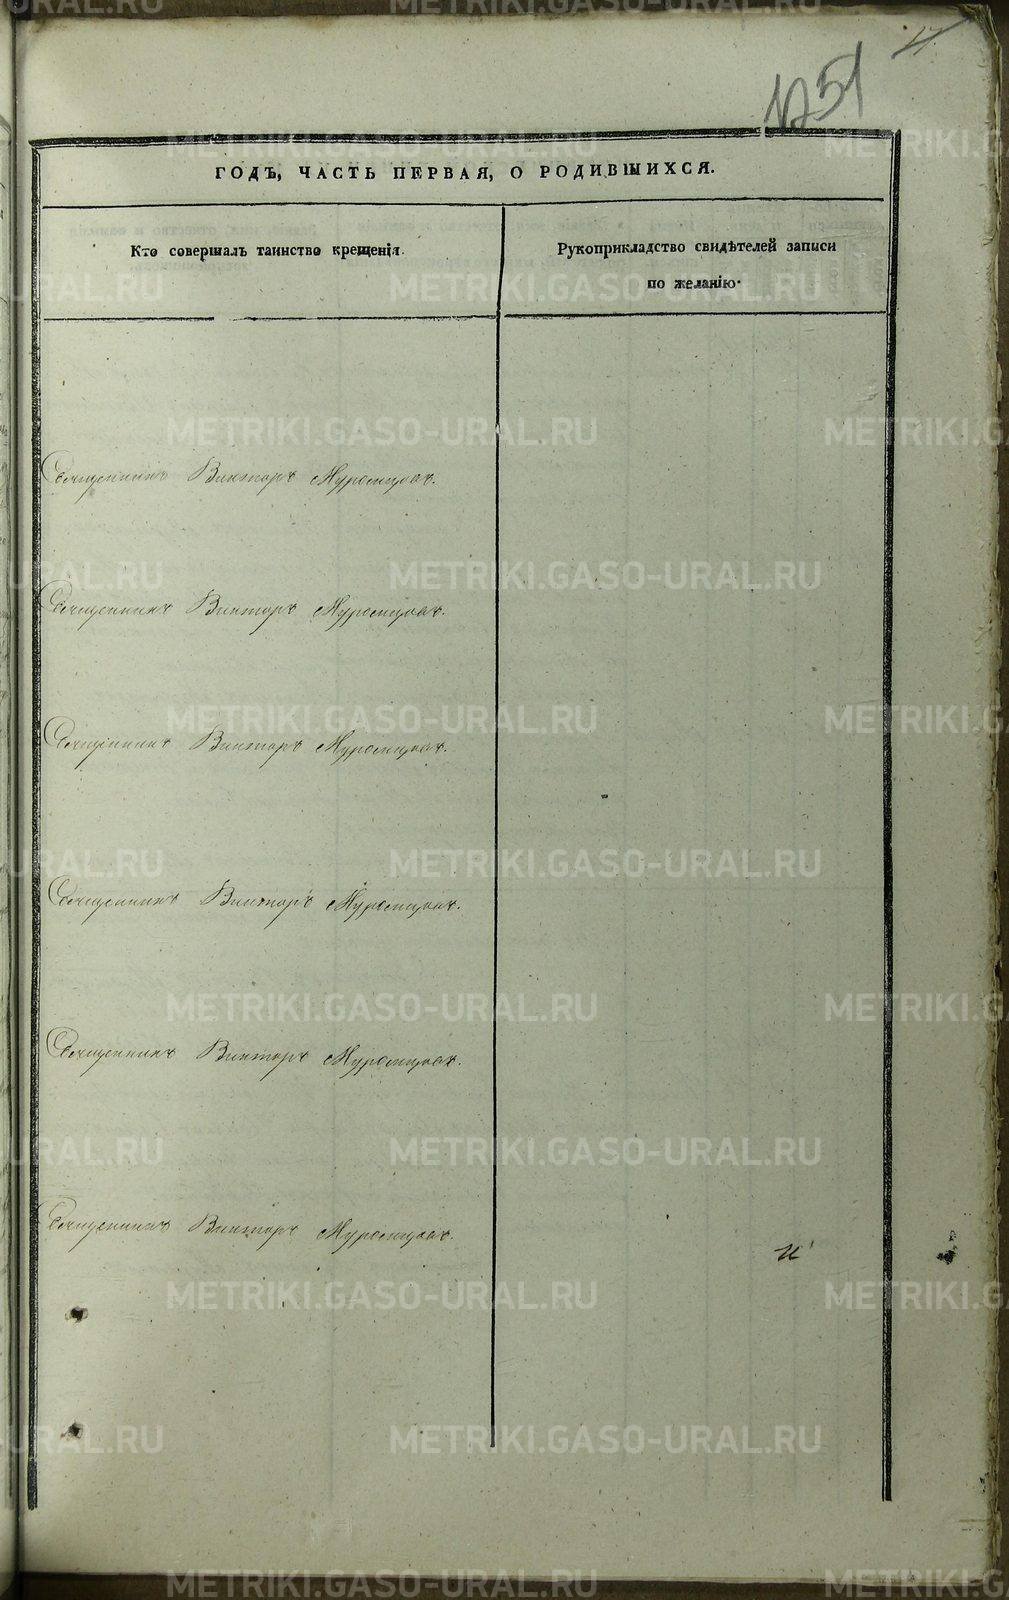 17.
1251
ГОДЪ, ЧАСТЬ ПЕРВАЯ, О РОДИВШИХСЯ.
Кто совершалъ таинство крещенія.
Рукоприкладство свидѣтелей записи
по желанію.
Священникъ Викторъ Муромцовъ.
Священникъ Викторъ Муромцовъ.
Священникъ Викторъ Муромцовъ.
Священникъ Викторъ Муромцовъ.
Священникъ Викторъ Муромцовъ.
Священникъ Викторъ Муромцовъ.
и
METRIKI.GASO-URAL.RU